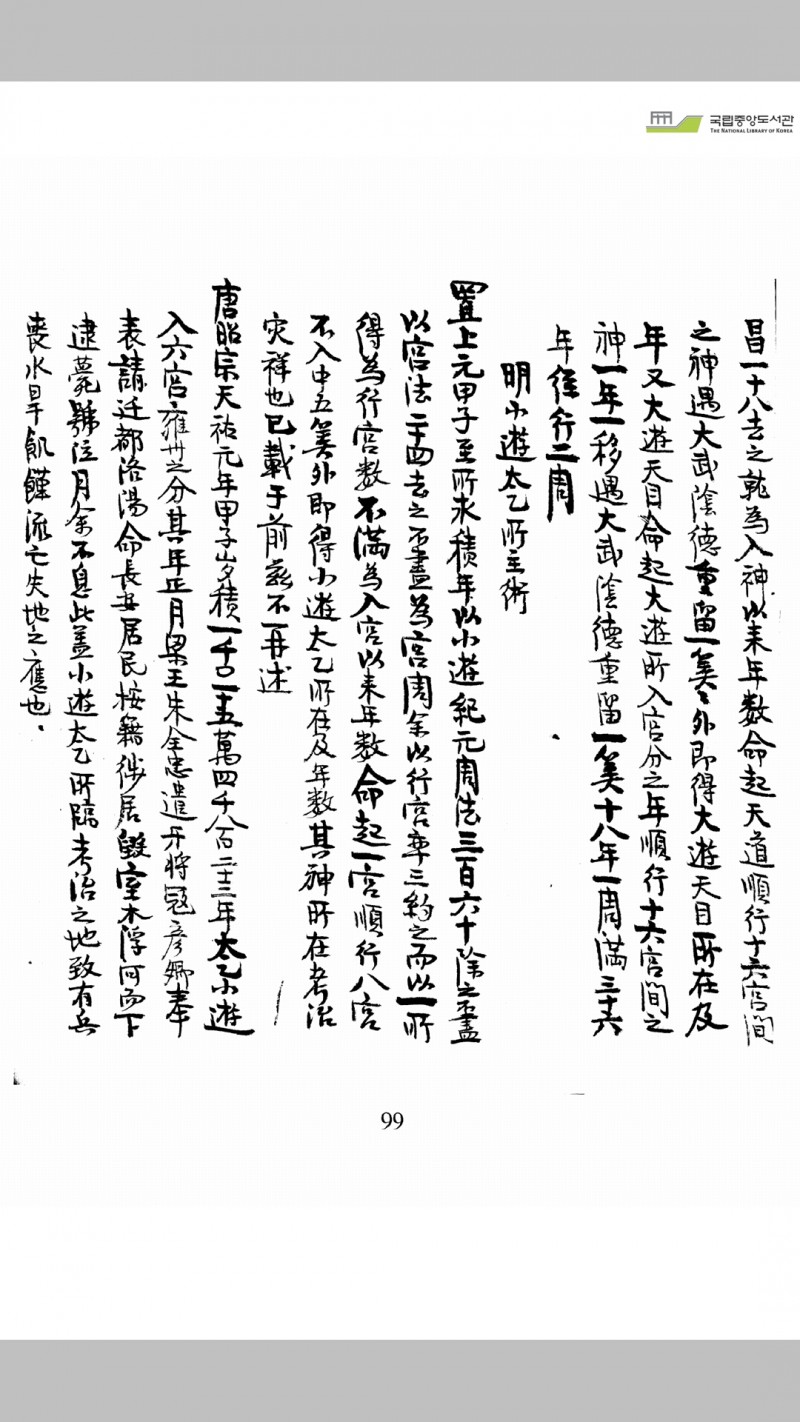 국립중앙도서관
THE NATIONAL LIBRARY OF KOREA
昌一十八去之就為入神以来年数命起天道順行十六宮間
之神遇大武陰德重留一筭〻外即得大遊天目所在及
年又大遊天目命起大遊所入宮分之年順行十六宮間之
神一年一移遇大武陰德重留一筭十八年一周滿三十六
年徑行二周
明小遊太乙所主術
置上元甲子至所求積年以小遊紀元周法三百六十除之不盡
以宮法二十四去之不盡為宮周余以行宮率三約之而以一所
得為行宮数不滿為入宮以来年数命起一宮順行八宮
不入中五筭外即得小遊太乙所在及年数其神所在考治
灾祥也已載于前玆不再述
唐昭宗天祐元年甲子岁積一千〇一十五萬四千八百二十三年太乙小遊
入六宮雍州之分其年正月梁王朱全忠遣牙将寇彦卿奉
表請迁都洛陽命長安居民按籍徙居毀室木浮河而下
逮薨號泣月余不息此盖小遊太乙所臨考治之地致有兵
喪水旱飢饉流亡失地之應也
99